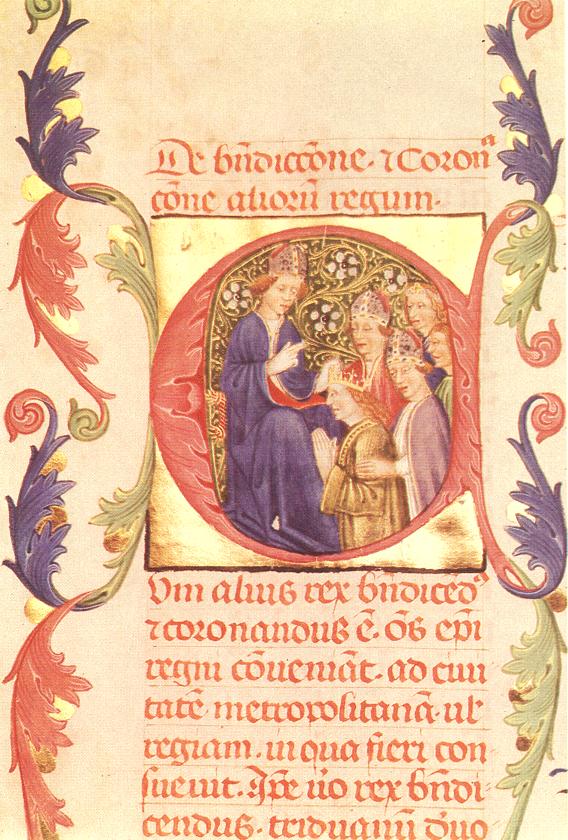 De bn̄diccōne · ⁊ Coronᵃ
cōne aliorū regum·
C
Vm alius rex bn̄dicēdꝰ
⁊ coronandus ē· ōs ep̄i
regni cōueniāt· ad ciui
tatē metropolitanā· ul'
regiam· in qua fieri con
sueuit. Ip̄e ūo rex bn̄di
cendus· triduanū d'uo